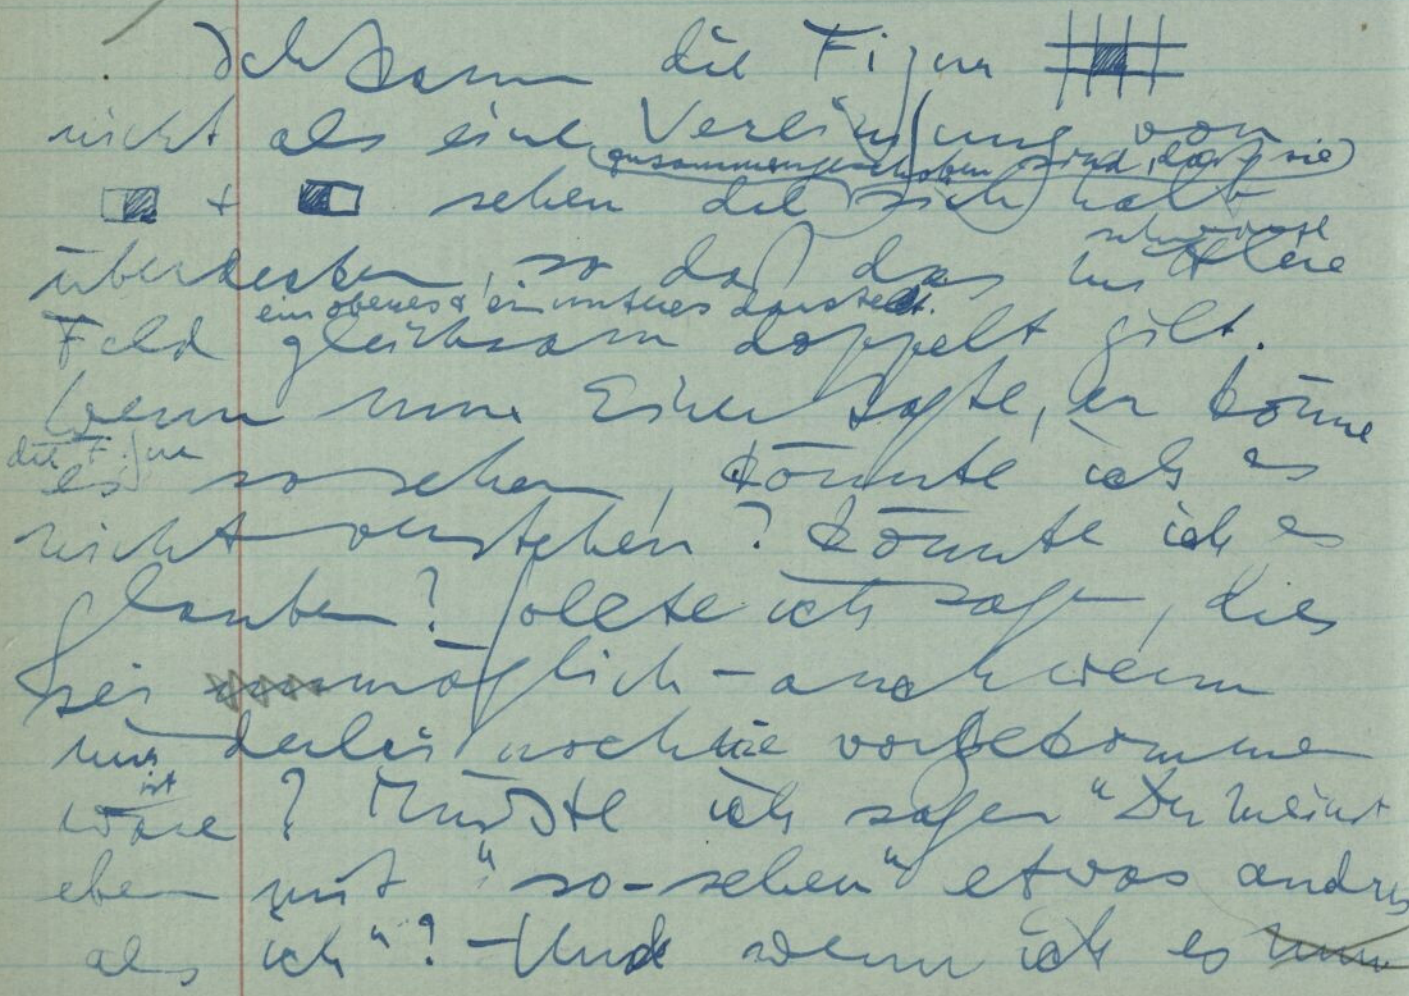 Ich kann die Figur
nicht als eine Vereinigung von
(zusammengeschoben sind, daß sie)
+ sehen die sich halb
schwarze
überdecken, so daß das mittlere
ein oberes & ein unteres darstellt.
Feld gleichsam doppelt gilt.
Wenn nun Einer sagte, er könne
die Figur
es so sehen, könnte ich es
nicht verstehen? Könnte ich es nicht
glauben? Sollte ich sagen, dies
sei unmöglich – auch wenn
mir derlei noch nie vorgekommen
ist
wäre? Müßte ich sagen "Du meinst
eben mit "so-sehen" etwas andres
als ich"? – Und wenn ich es nun